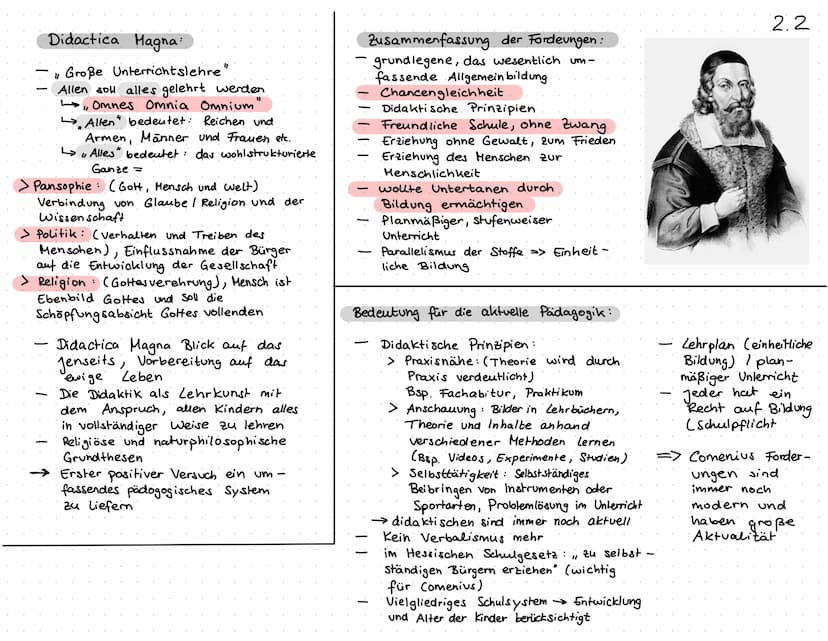 2.2
Didactica Magna:
– „Große Unterrichtslehre"
– Allen soll alles gelehrt werden
↳ „Omnes Omnia Omnium"
↳ „Allen" bedeutet: Reichen und
Armen, Männer und Frauen etc.
↳ „Alles" bedeutet: das wohlstrukturierte
Ganze =
> Pansophie: (Gott, Mensch und Welt)
Verbindung von Glaube / Religion und der
Wissenschaft
> Politik: (Verhalten und Treiben des
Menschen), Einflussnahme der Bürger
auf die Entwicklung der Gesellschaft
> Religion: (Gottesverehrung), Mensch ist
Ebenbild Gottes und soll die
Schöpfungsabsicht Gottes vollenden
– Didactica Magna Blick auf das
Jenseits, Vorbereitung auf das
ewige Leben
– Die Didaktik als Lehrkunst mit
dem Anspruch, allen Kindern alles
in vollständiger Weise zu lehren
– Religiöse und naturphilosophische
Grundthesen
→ Erster positiver Versuch ein um-
fassendes pädagogisches System
zu liefern
Zusammenfassung der Fordeungen:
– grundlegene, das wesentlich um-
fassende Allgemeinbildung
– Chancengleichheit
– Didaktische Prinzipien
– Freundliche Schule, ohne Zwang
– Erziehung ohne Gewalt, zum Frieden
– Erziehung des Menschen zur
Menschlichkeit
– wollte Untertanen durch
Bildung ermächtigen
– Planmäßiger, stufenweiser
Unterricht
– Parallelismus der Stoffe => Einheit-
liche Bildung
Bedeutung für die aktuelle Pädagogik:
– Didaktische Prinzipien:
> Praxisnähe: (Theorie wird durch
Praxis verdeutlicht)
Bsp. Fachabitur, Praktikum
> Anschauung: Bilder in Lehrbüchern,
Theorie und Inhalte anhand
verschiedener Methoden lernen
(Bsp. Videos, Experimente, Studien)
> Selbsttätigkeit: Selbstständiges
Beibringen von Instrumenten oder
Sportarten, Problemlösung im Unterricht
→ didaktischen sind immer noch aktuell
– Kein Verbalismus mehr
– im Hessischen Schulgesetz: „zu selbst-
ständigen Bürgern erziehen" (wichtig
für Comenius)
– Vielgliedriges Schulsystem → Entwicklung
und Alter der Kinder berücksichtigt
– Lehrplan (einheitliche
Bildung) / plan-
mäßiger Unterricht
– Jeder hat ein
Recht auf Bildung
(Schulpflicht
=> Comenius Forder-
ungen sind
immer noch
modern und
haben große
Aktualität